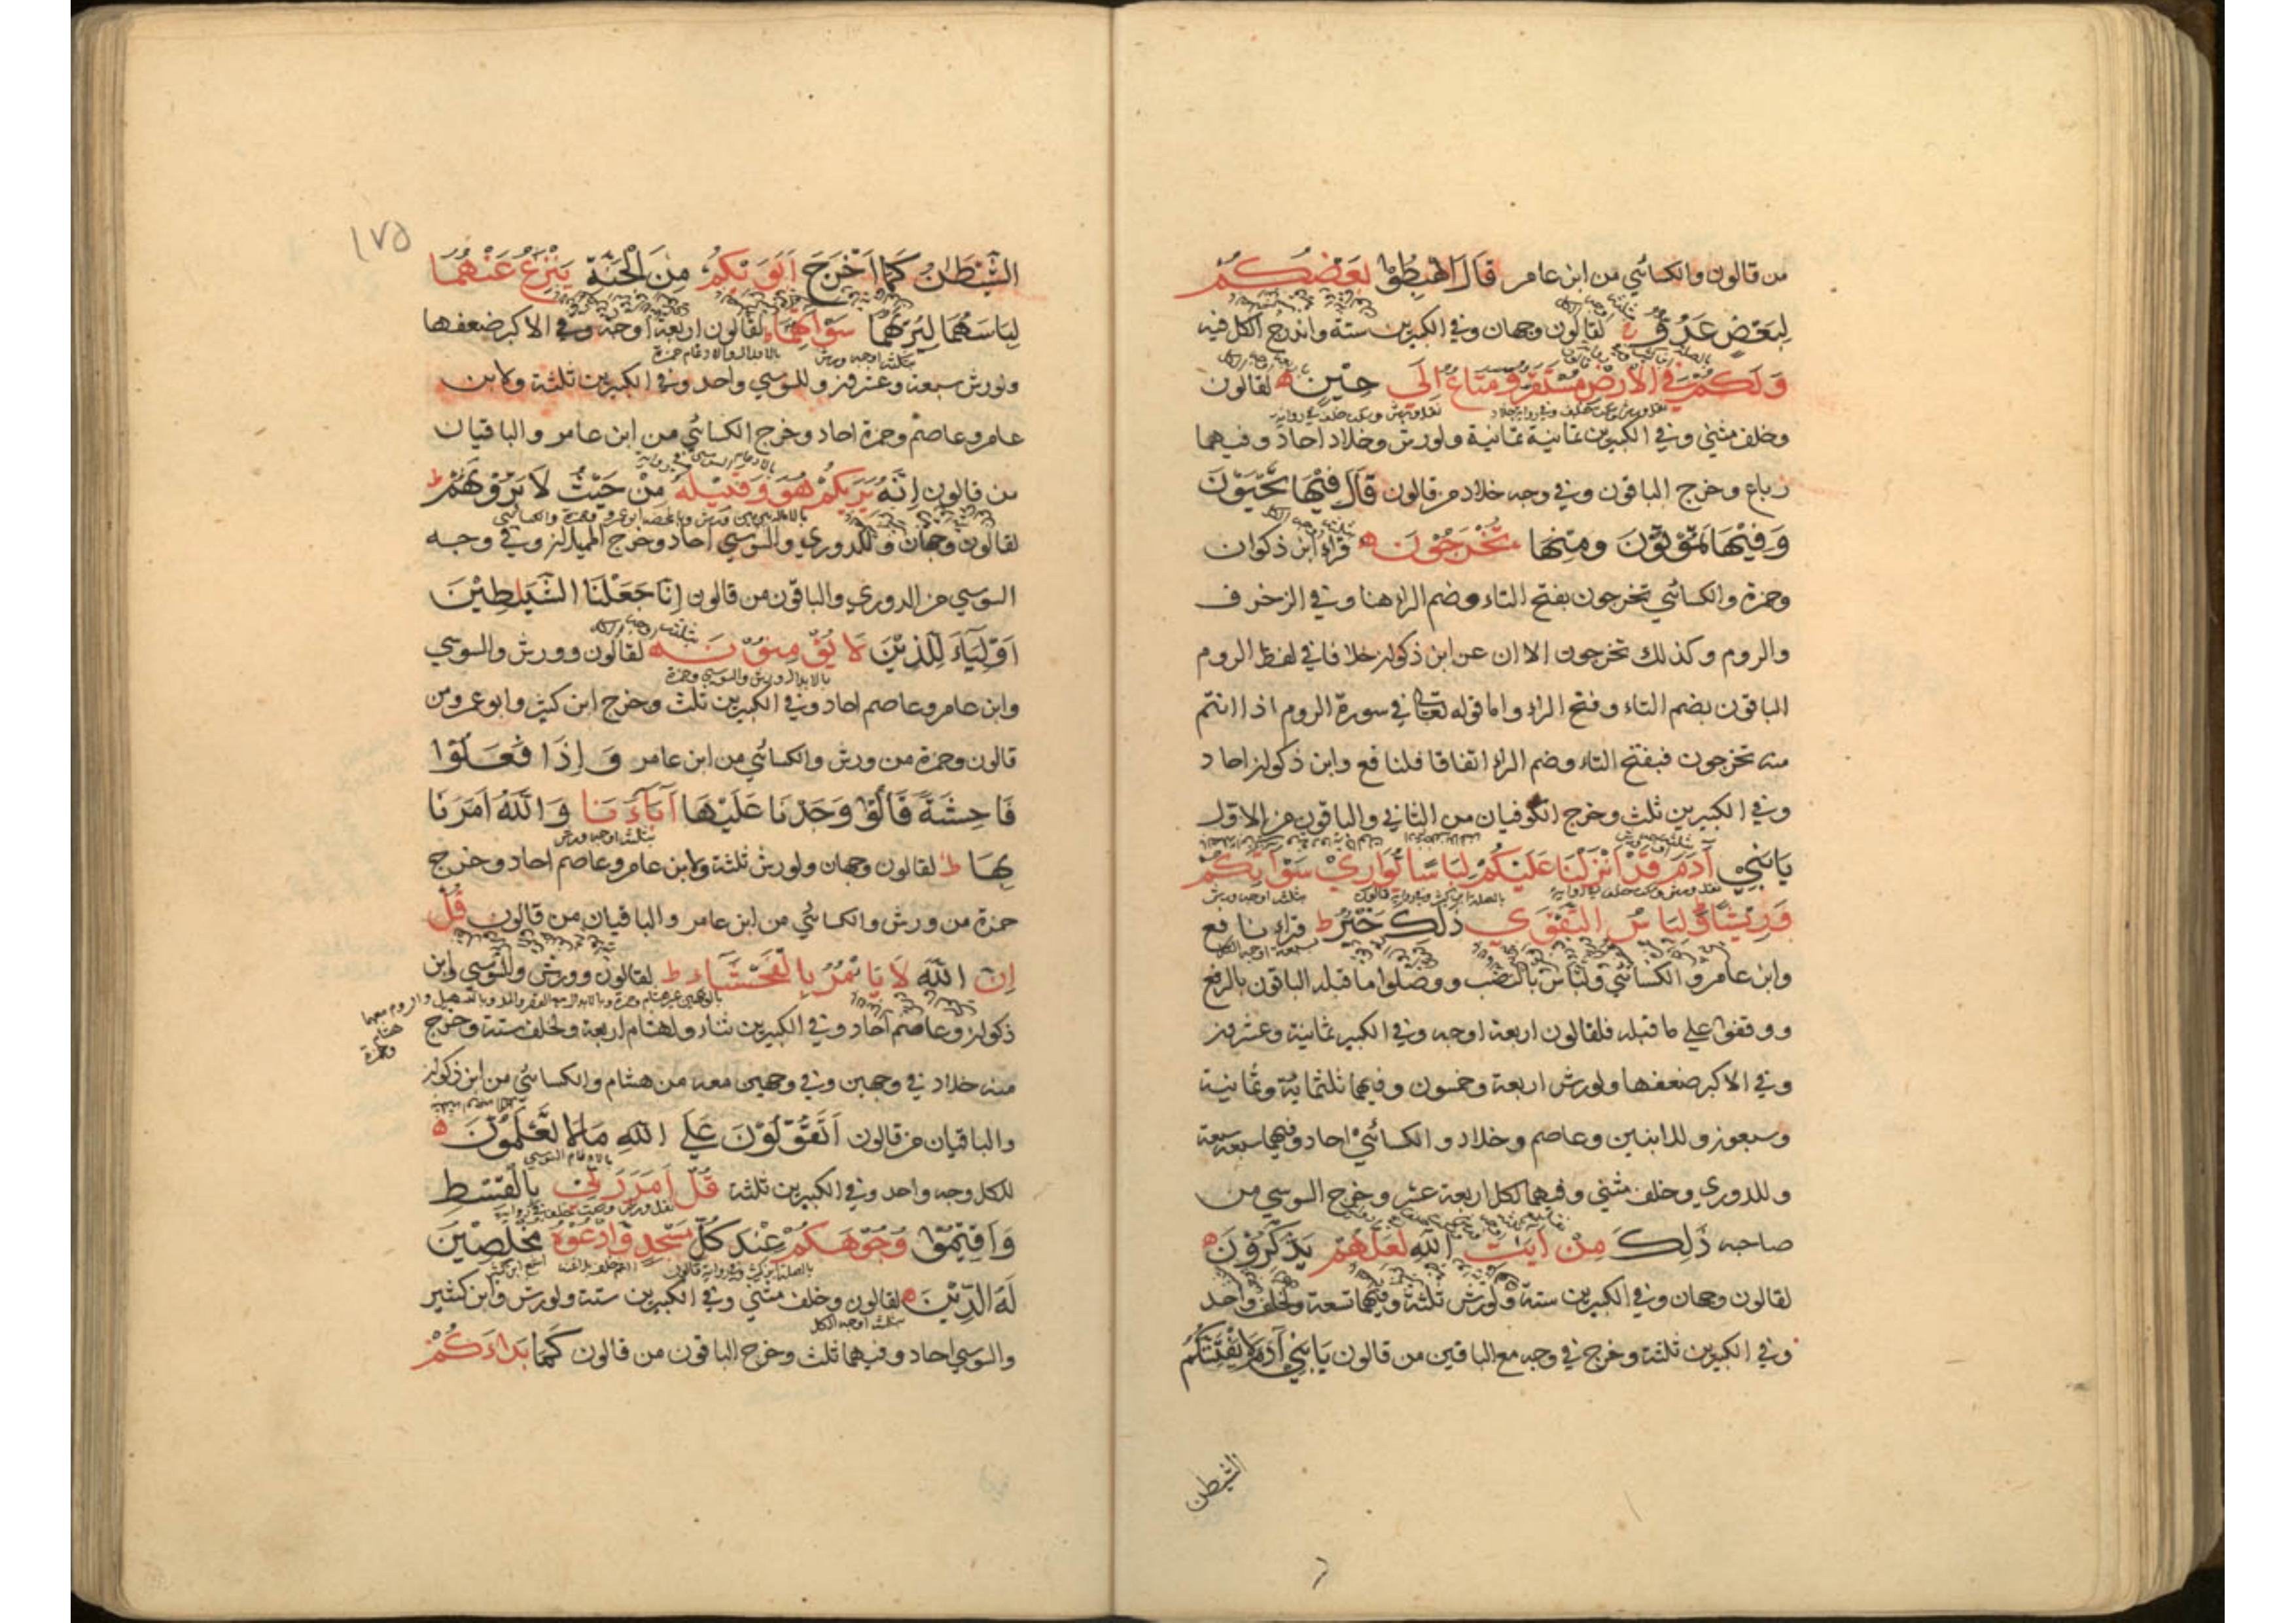 من قالون والكسائي من ابن عامر قَالَ اهْبِطُوْا بَعْضُكُمْ
لِبَعْضٍ عَدُوٌّ ج لقالون وجهان وفي الكبيرين ستة واندرج الكل فيه
وَلَكُمْ فِي الْاَرْضِ مُسْتَقَرٌّ وَّمَتَاعٌ اِلَى حِيْنٍ ه لقالون
وخلف مثنى وفي الكبيرين ثمانية ثمانية ولورش وخلاد احاد وفيهما
رباع وخرج الباقون وفي وجه خلاد من قالون قَالَ فِيْهَا تَحْيَوْنَ
وَفِيْهَا تَمُوْتُوْنَ وَمِنْهَا تُخْرَجُوْنَ ه قراء ابن ذكوان
وحمزة والكسائي تخرجون بفتح التاء وضم الراء هنا وفي الزخرف
والروم وكذلك تخرجون الا ان عن ابن ذكوان خلافا في لفظ الروم
الباقون بضم التاء وفتح الراء واما قوله تعالى في سورة الروم اذا انتم
منه تخرجون فبفتح التاء وضم الراء اتفاقا فلنافع وابن ذكوان احاد
وفي الكبيرين ثلث وخرج الكوفيان من الثاني والباقون من الاول
يَابَنِيْ آدَمَ قَدْ اَنْزَلْنَا عَلَيْكُمْ لِبَاسًا يُّوَارِيْ سَوْآتِكُمْ
وَرِيْشًا ط وَلِبَاسُ التَّقْوَى ذٰلِكَ خَيْرٌ ط قراء نافع
وابن عامر والكسائي ولباس بالنصب ووصلوا ما قبله الباقون بالرفع
ووقفوا على ما قبله فلقالون اربعة اوجه وفي الكبير ثمانية وعشرين
وفي الاكبر ضعفها ولورش اربعة وخمسون وفيهما ثلثمائة وثمانية
وسبعون وللابنين وعاصم وخلاد والكسائي احاد وفيهما سبعة سبعة
وللدوري وخلف مثنى وفيهما لكل اربعة عشر وخرج السوسي من
صاحبه ذٰلِكَ مِنْ آيٰتِ اللّٰهِ لَعَلَّهُمْ يَذَّكَّرُوْنَ ه
لقالون وجهان وفي الكبيرين ستة ولورش ثلثة وفيهما تسعة ولخلف واحد
وفي الكبيرين ثلثة وخرج في وجه مع الباقين من قالون يَابَنِيْ آدَمَ لَا يَفْتِنَنَّكُمُ
الشيطن
١٧٥
الشَّيْطٰنُ كَمَا اَخْرَجَ اَبَوَيْكُمْ مِنَ الْجَنَّةِ يَنْزِعُ عَنْهُمَا
لِبَاسَهُمَا لِيُرِيَهُمَا سَوْآتِهِمَا ط لقالون اربعة اوجه وفي الاكبر ضعفها
ولورش سبعة وعشرين وللسوسي واحد وفي الكبيرين ثلثة ولابن
عامر وعاصم وحمزة احاد وخرج الكسائي من ابن عامر والباقيان
من قالون اِنَّهُ يَرٰىكُمْ هُوَ وَقَبِيْلُهُ مِنْ حَيْثُ لَا تَرَوْنَهُمْ ط
لقالون وجهان وللدوري والسوسي احاد وخرج المميلان وفي وجه
السوسي من الدوري والباقون من قالون اِنَّا جَعَلْنَا الشَّيٰطِيْنَ
اَوْلِيَاءَ لِلَّذِيْنَ لَا يُؤْمِنُوْنَ ه لقالون وورش والسوسي
بالابدال ورش والسوسي وحمزة
وابن عامر وعاصم احاد وفي الكبيرين ثلث وخرج ابن كثير وابو عمرو من
قالون وحمزة من ورش والكسائي من ابن عامر وَاِذَا فَعَلُوْا
فَاحِشَةً قَالُوْا وَجَدْنَا عَلَيْهَا آبَاءَنَا وَاللّٰهُ اَمَرَنَا
بثلثة اوجه ورش
بِهَا ط لقالون وجهان ولورش ثلثة ولابن عامر وعاصم احاد وخرج
حمزة من ورش والكسائي من ابن عامر والباقيان من قالون قُلْ
اِنَّ اللّٰهَ لَا يَاْمُرُ بِالْفَحْشَاءِ ط لقالون وورش والسوسي وابن
ذكوان وعاصم احاد وفي الكبيرين ثناء ولهشام اربعة ولخلف ستة وخرج
منه خلاد في وجهين وفي وجهين معه من هشام والكسائي من ابن ذكوان
والباقيان من قالون اَتَقُوْلُوْنَ عَلَى اللّٰهِ مَا لَا تَعْلَمُوْنَ ه
بالادغام السوسي
للكل وجه واحد وفي الكبيرين ثلثة قُلْ اَمَرَ رَبِّيْ بِالْقِسْطِ
وَاَقِيْمُوْا وُجُوْهَكُمْ عِنْدَ كُلِّ مَسْجِدٍ وَّادْعُوْهُ مُخْلِصِيْنَ
لَهُ الدِّيْنَ ه لقالون وخلف مثنى وفي الكبيرين ستة ولورش وابن كثير
بثلثة اوجه الكل
والسوسي احاد وفيهما ثلث وخرج الباقون من قالون كَمَا بَدَاَكُمْ